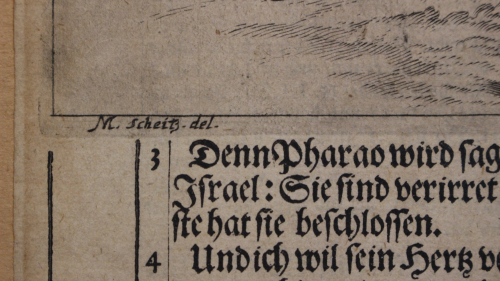 M. Scheitz. del.
3 Denn Pharao wird ſag
Iſrael: Sie ſind verirret
ſte hat ſie beſchloſſen.
4 Und ich wil ſein Hertz ve